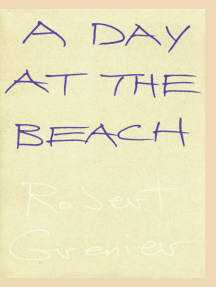 A DAY
AT THE
BEACH
Robert
Grenier